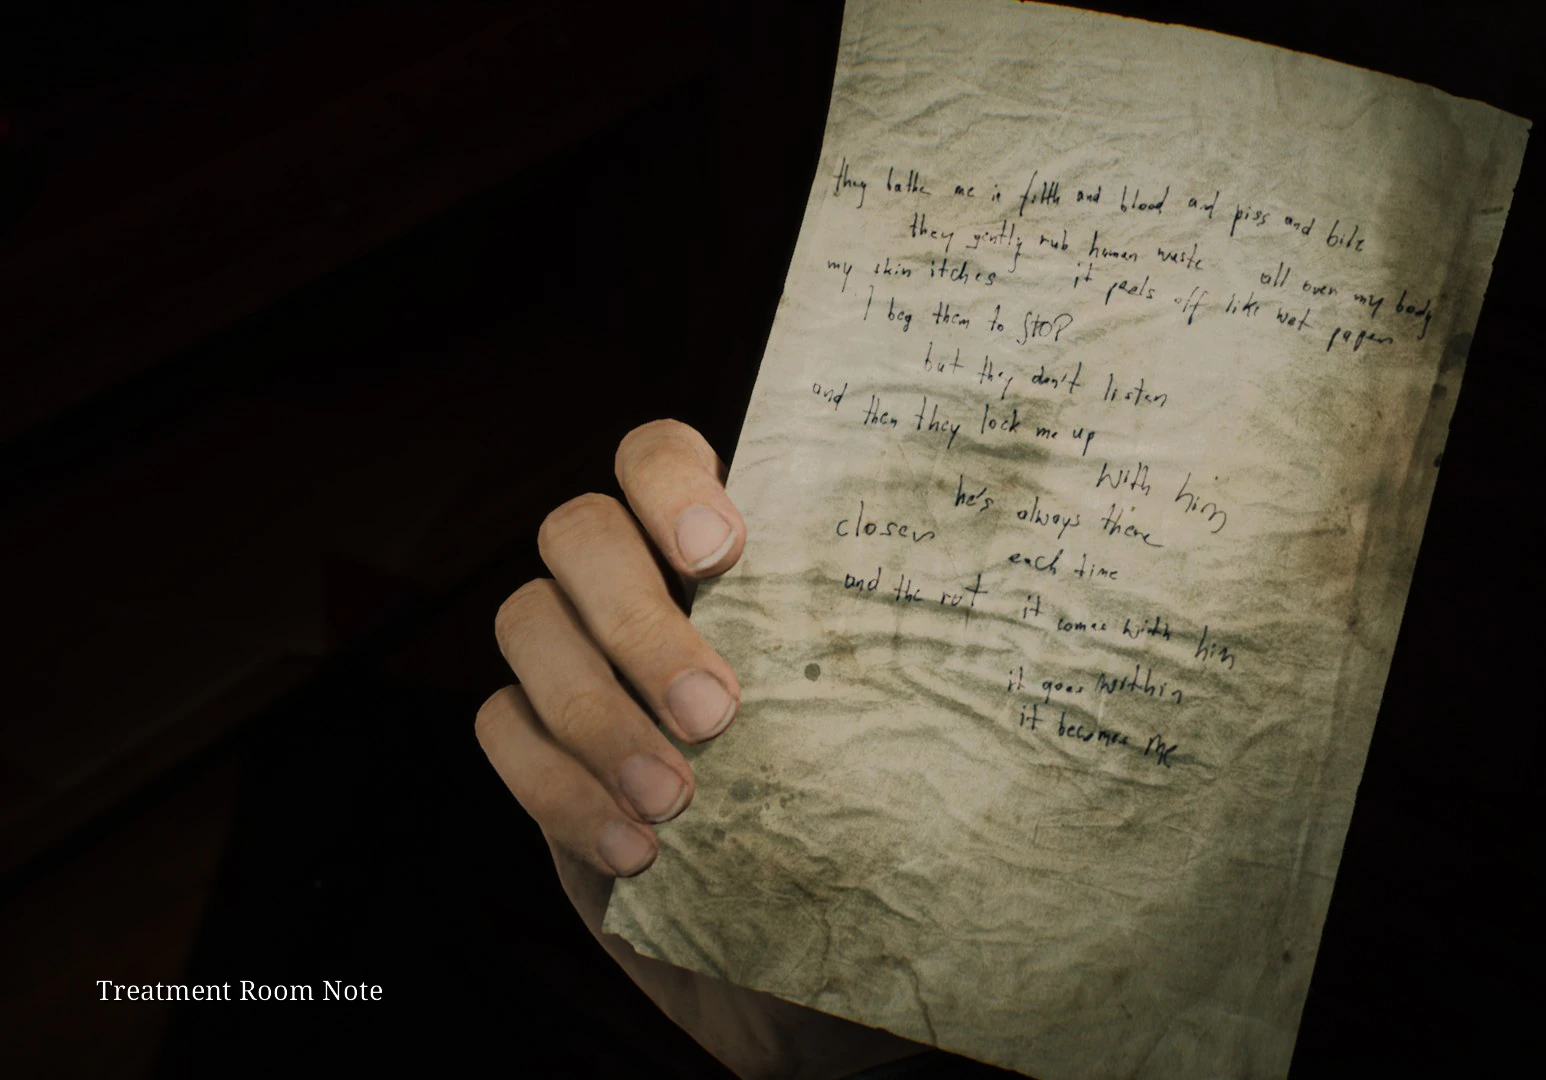 they bathe me in filth and blood and piss and bile
they gently rub human waste all over my body
my skin itches it peels off like wet paper
I beg them to STOP
but they don't listen
and then they lock me up
with him
he's always there
closer each time
and the rot it comes with him
it goes within
it becomes me
Treatment Room Note